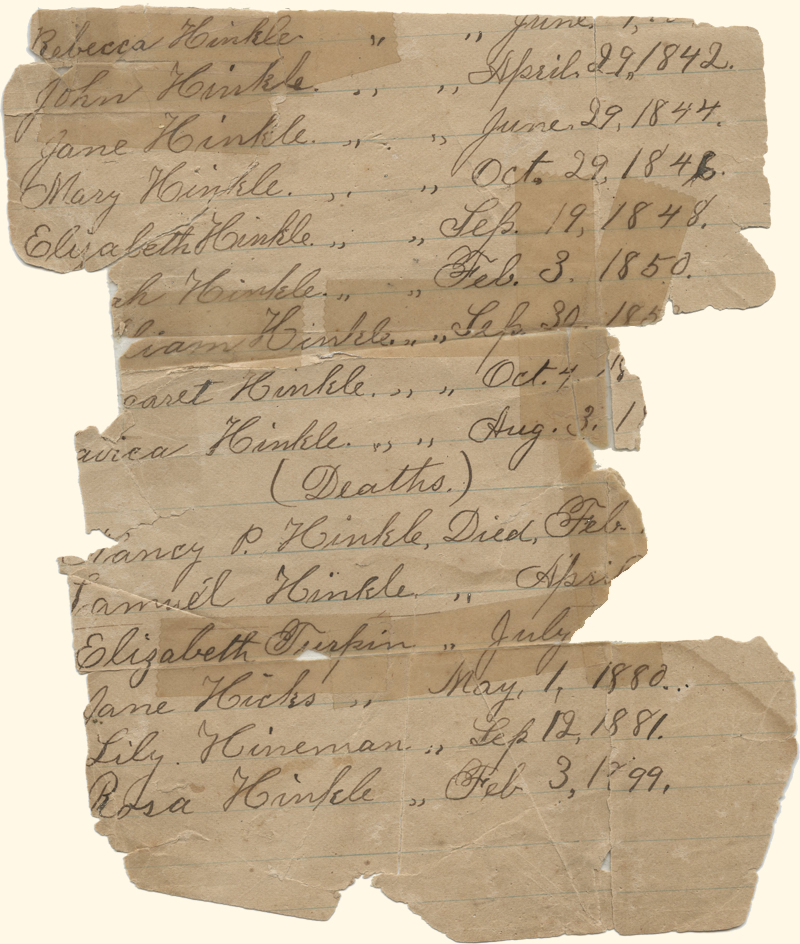 Rebecca Hinkle " " June 1,
John Hinkle. " " April. 29, 1842.
Jane Hinkle. " " June. 29, 1844.
Mary Hinkle. " " Oct. 29, 1846.
Elizabeth Hinkle. " " Sep. 19, 1848.
ah Hinkle. " " Feb. 3. 1850.
liam Hinkle. " " Sep. 30. 185
garet Hinkle. " " Oct. 4. 18
avica Hinkle. " " Aug. 3. 1
(Deaths.)
Nancy P. Hinkle, Died, Feb.
Samuel Hinkle. " April
Elizabeth Turpin " July
Jane Hicks " May, 1, 1880..
Lily. Hineman. " Sep 12, 1881.
Rosa Hinkle " Feb 3, 1899.